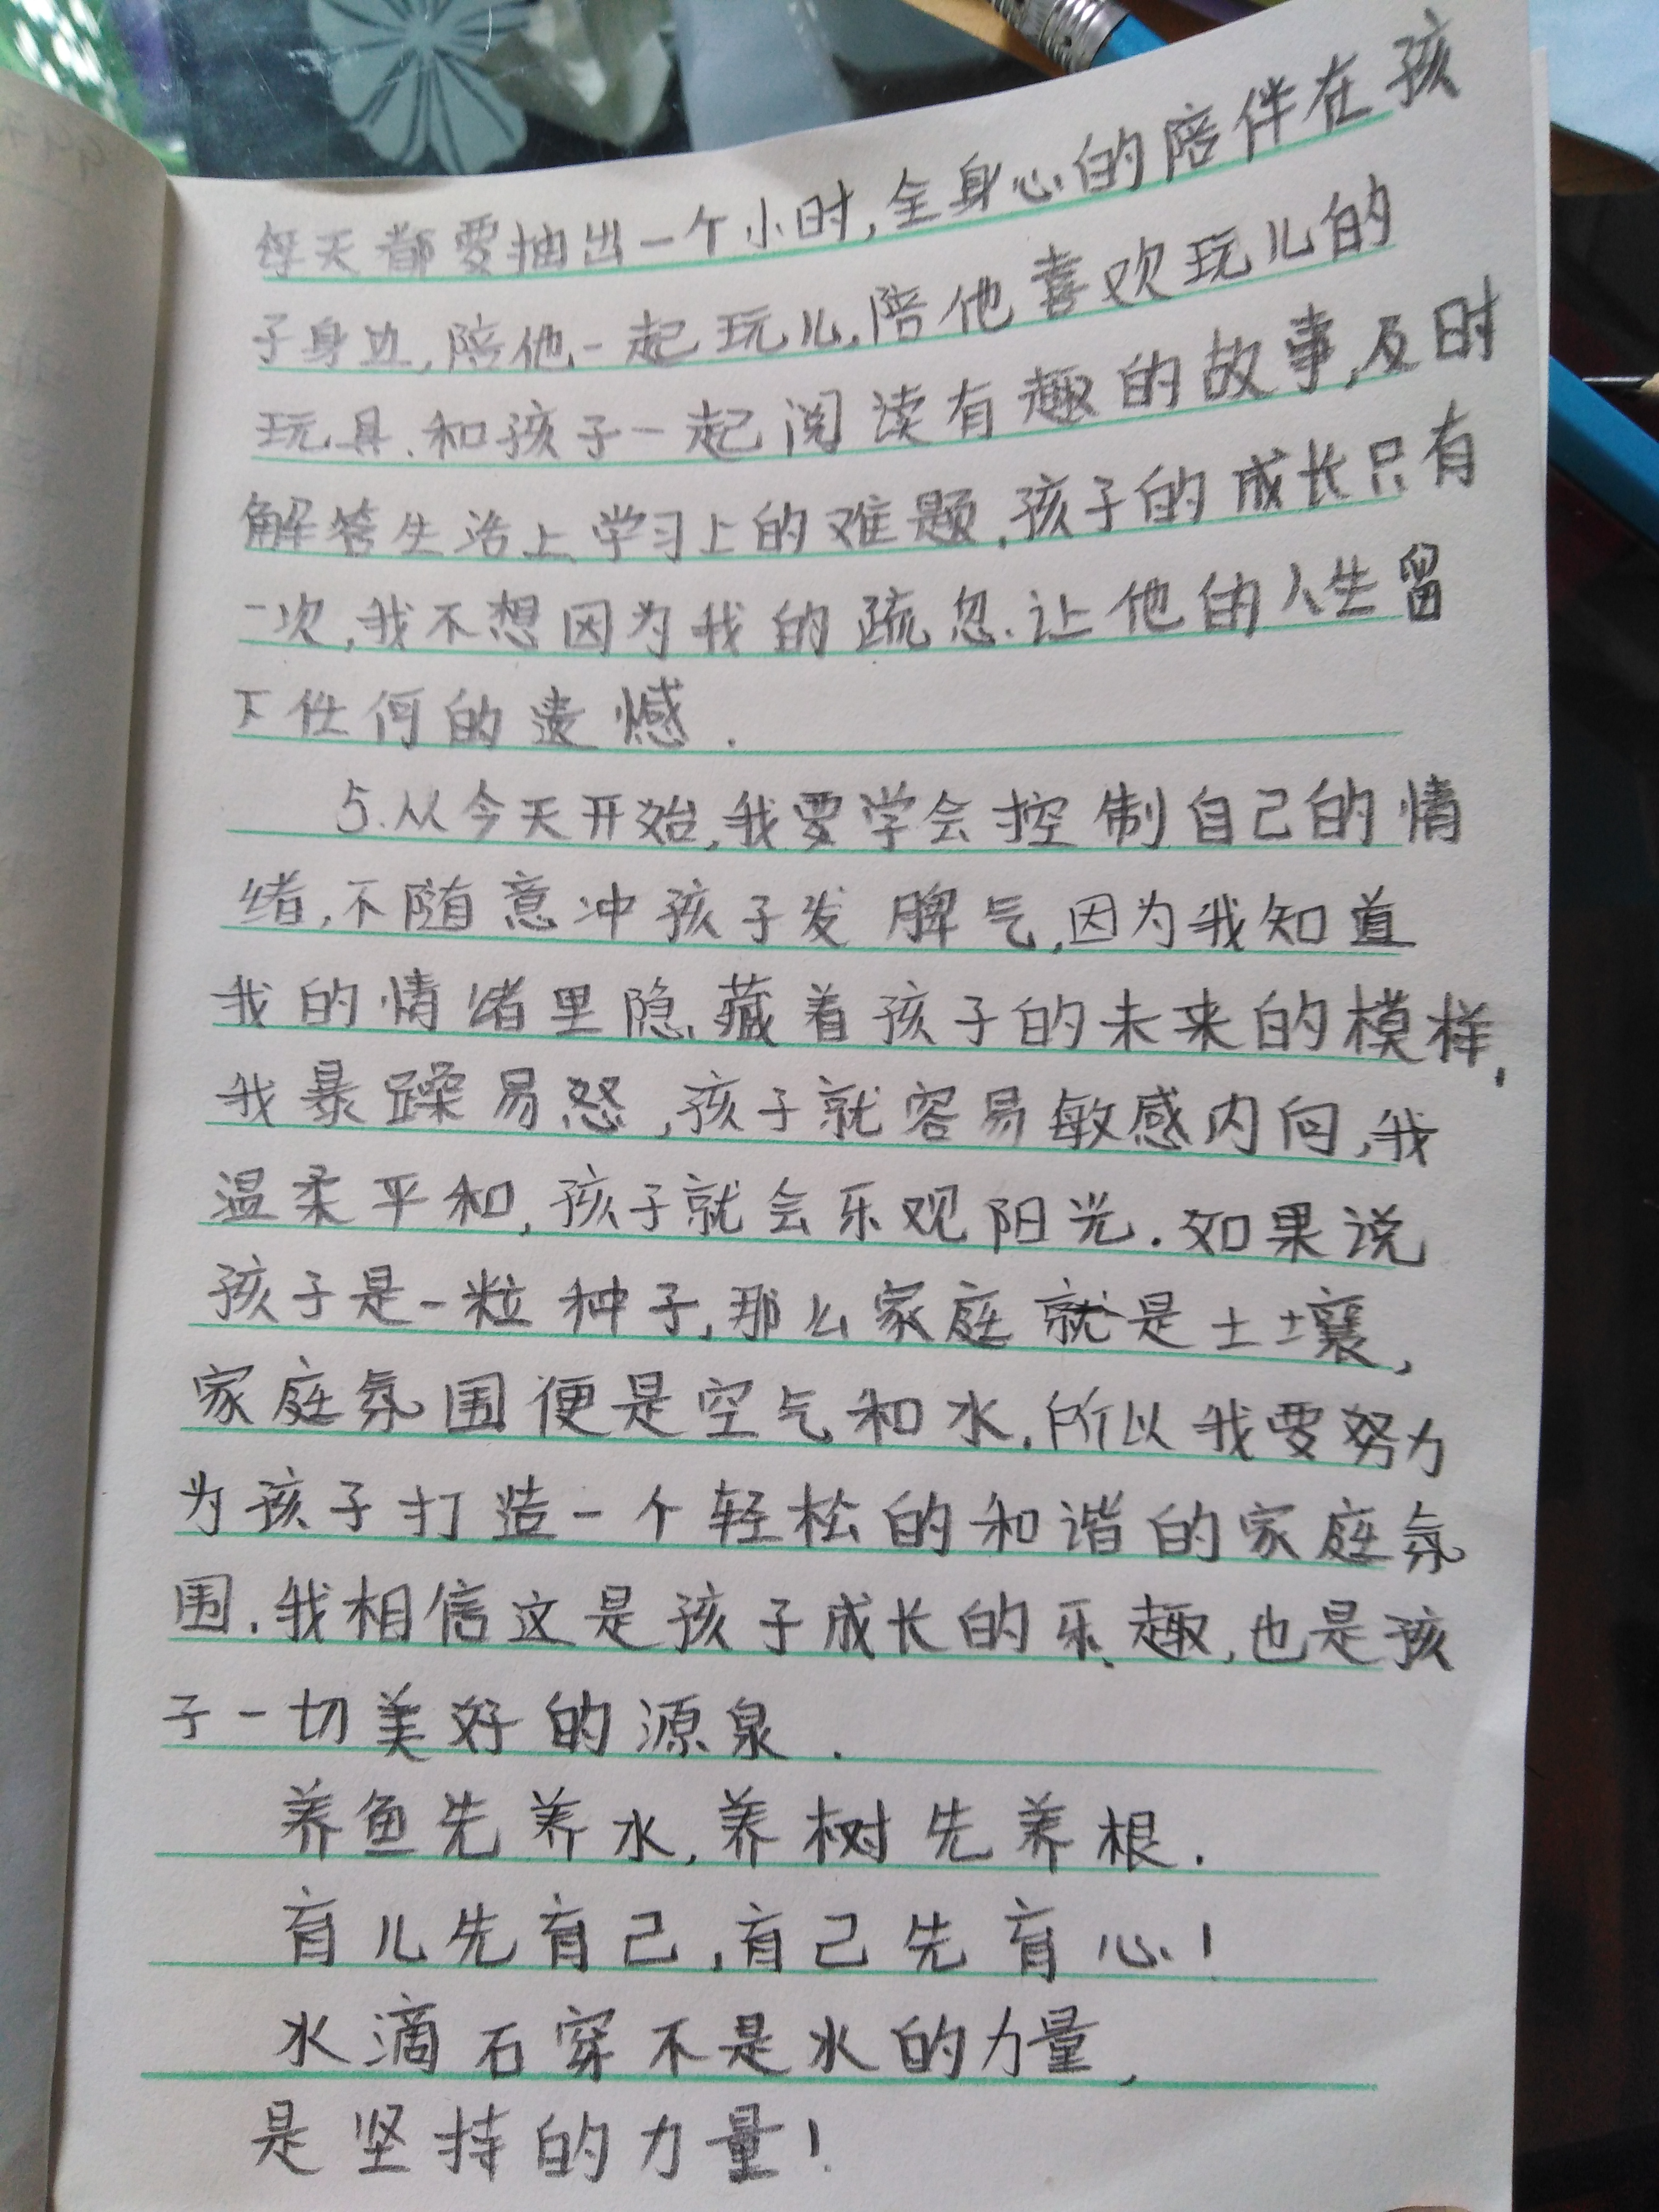 每天都要抽出一个小时,全身心的陪伴在孩
子身边,陪他一起玩儿,陪他喜欢玩儿的
玩具.和孩子一起阅读有趣的故事,及时
解答生活上学习上的难题.孩子的成长只有
一次,我不想因为我的疏忽.让他的人生留
下任何的遗憾.
5.从今天开始,我要学会控制自己的情
绪,不随意冲孩子发脾气,因为我知道
我的情绪里隐藏着孩子的未来的模样,
我暴躁易怒,孩子就容易敏感内向,我
温柔平和,孩子就会乐观阳光.如果说
孩子是一粒种子,那么家庭就是土壤,
家庭氛围便是空气和水.所以我要努力
为孩子打造一个轻松的和谐的家庭氛
围.我相信这是孩子成长的乐趣,也是孩
子一切美好的源泉.
养鱼先养水,养树先养根.
育儿先育己,育己先育心!
水滴石穿不是水的力量,
是坚持的力量!